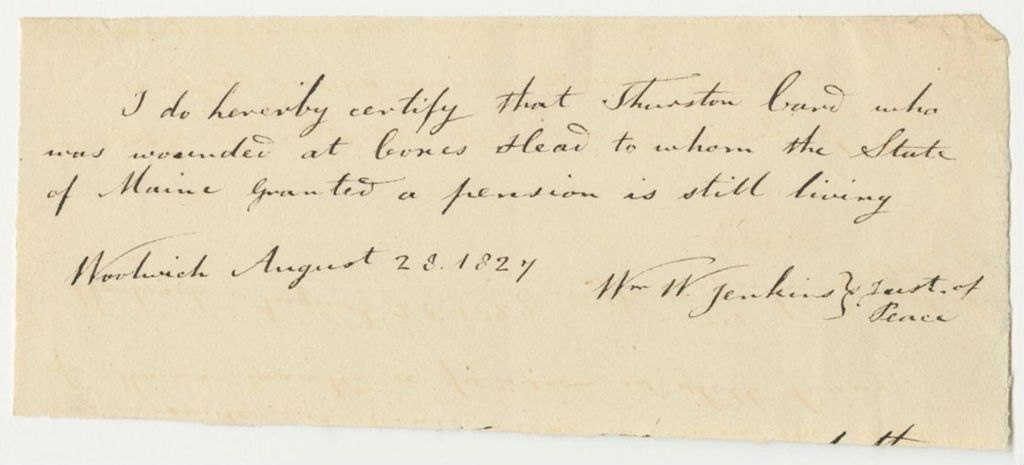 I do hereriby certify that Thurston Card who
was wounded at Cones Head to whom the State
of Maine granted a pension is still living
Woolwich August 28. 1827
Wm W. Jenkins } Just. of
Peace